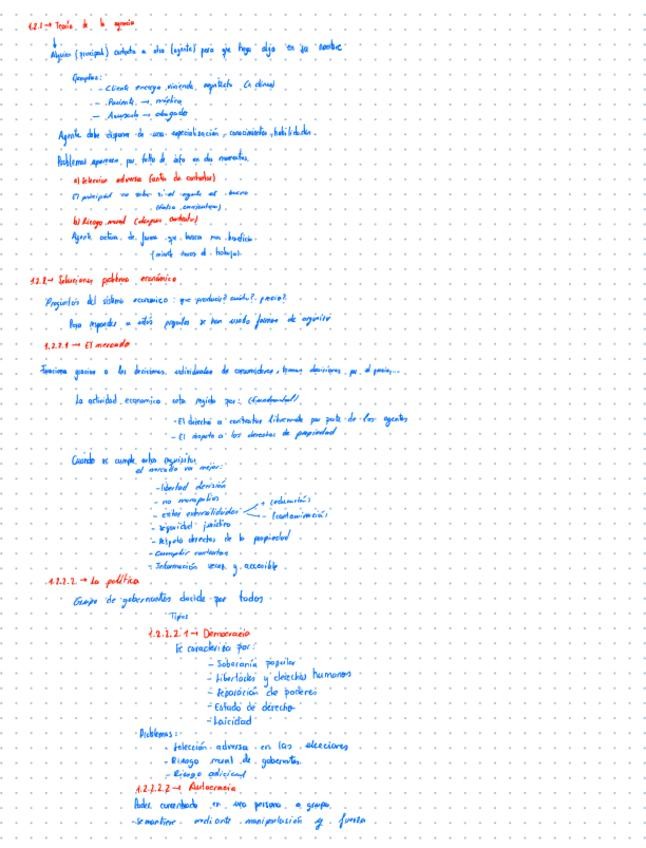 1.2.1 → Teoría de la agencia
Alguien (principal) contrata a otro (agente) para que haga algo en su nombre
Ejemplos:
- Cliente encarga vivienda arquitecto
- Paciente → médico
- Acusado → abogado
Agente debe disponer de una especialización, conocimientos, habilidades.
Problemas aparecen por falta de info en dos momentos.
a) Selección adversa (antes de contratar)
El principal no sabe si el agente es bueno
b) Riesgo moral (después contratar)
Agente actúa de forma que busca su beneficio
1.2.2 → Soluciones problema económico
Preguntas del sistema económico: que producir? cuánto? precio?
Para responder a estas preguntas se han usado formas de organizar
1.2.2.1 → El mercado
Funciona gracias a las decisiones individuales de consumidores, toman decisiones por el precio,...
La actividad economica esta regida por: (fundamental)
- El derecho a contratar libremente por parte de los agentes
- El respeto a los derechos de propiedad
Cuando se cumple estos requisitos
el mercado va mejor:
- libertad decisión
- no monopolios
- externalidades
+ (educación)
- (contaminación)
- seguridad jurídica
- Respeto derechos de la propiedad
- Cumplir contratos
- Información veraz y accesible.
1.2.2.2. → La política
Grupo de gobernantes decide por todos
Tipos
1.2.2.2.1 → Democracia
Se caracteriza por:
- Soberanía popular
- Libertades y derechos humanos
- Separación de poderes
- Estado de derecho
- Laicidad
Problemas:
- Selección adversa en las elecciones
- Riesgo moral de gobernantes
- Riesgo
1.2.2.2.2 → Autocracia
Poder concentrado en una persona o grupo.
- Se mantiene mediante manipulación y fuerza